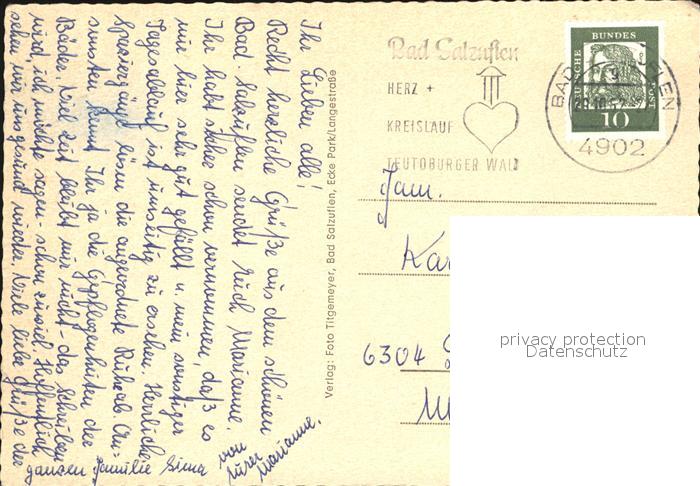 Ihr Lieben alle!
Recht herzliche Grüße aus dem schönen
Bad Salzuflen sendet Euch Marianne.
Ihr habt sicher schon vernommen, daß es
mir hier sehr gut gefällt u. mein sonstiger
Tagesablauf ist umseitig zu ersehen. Herrliche
Spaziergänge lösen die angeordnete Ruhe ab. An-
sonsten kennt Ihr ja die Gepflogenheiten der
Bäder. Viel Zeit bleibt mir nicht, das Schreiben
wird, ich möchte sagen - schon zuviel. Hoffentlich
sehen wir uns gesund wieder. Viele liebe Grüße der
ganzen Familie
von
Eurer
Marianne.
Verlag: Foto Titgemeyer, Bad Salzuflen, Ecke Park/Langestraße
Bad Salzuflen
HERZ +
KREISLAUF
TEUTOBURGER WALD
DEUTSCHE BUNDESPOST
10
4902
Fam.
6304
privacy protection
Datenschutz